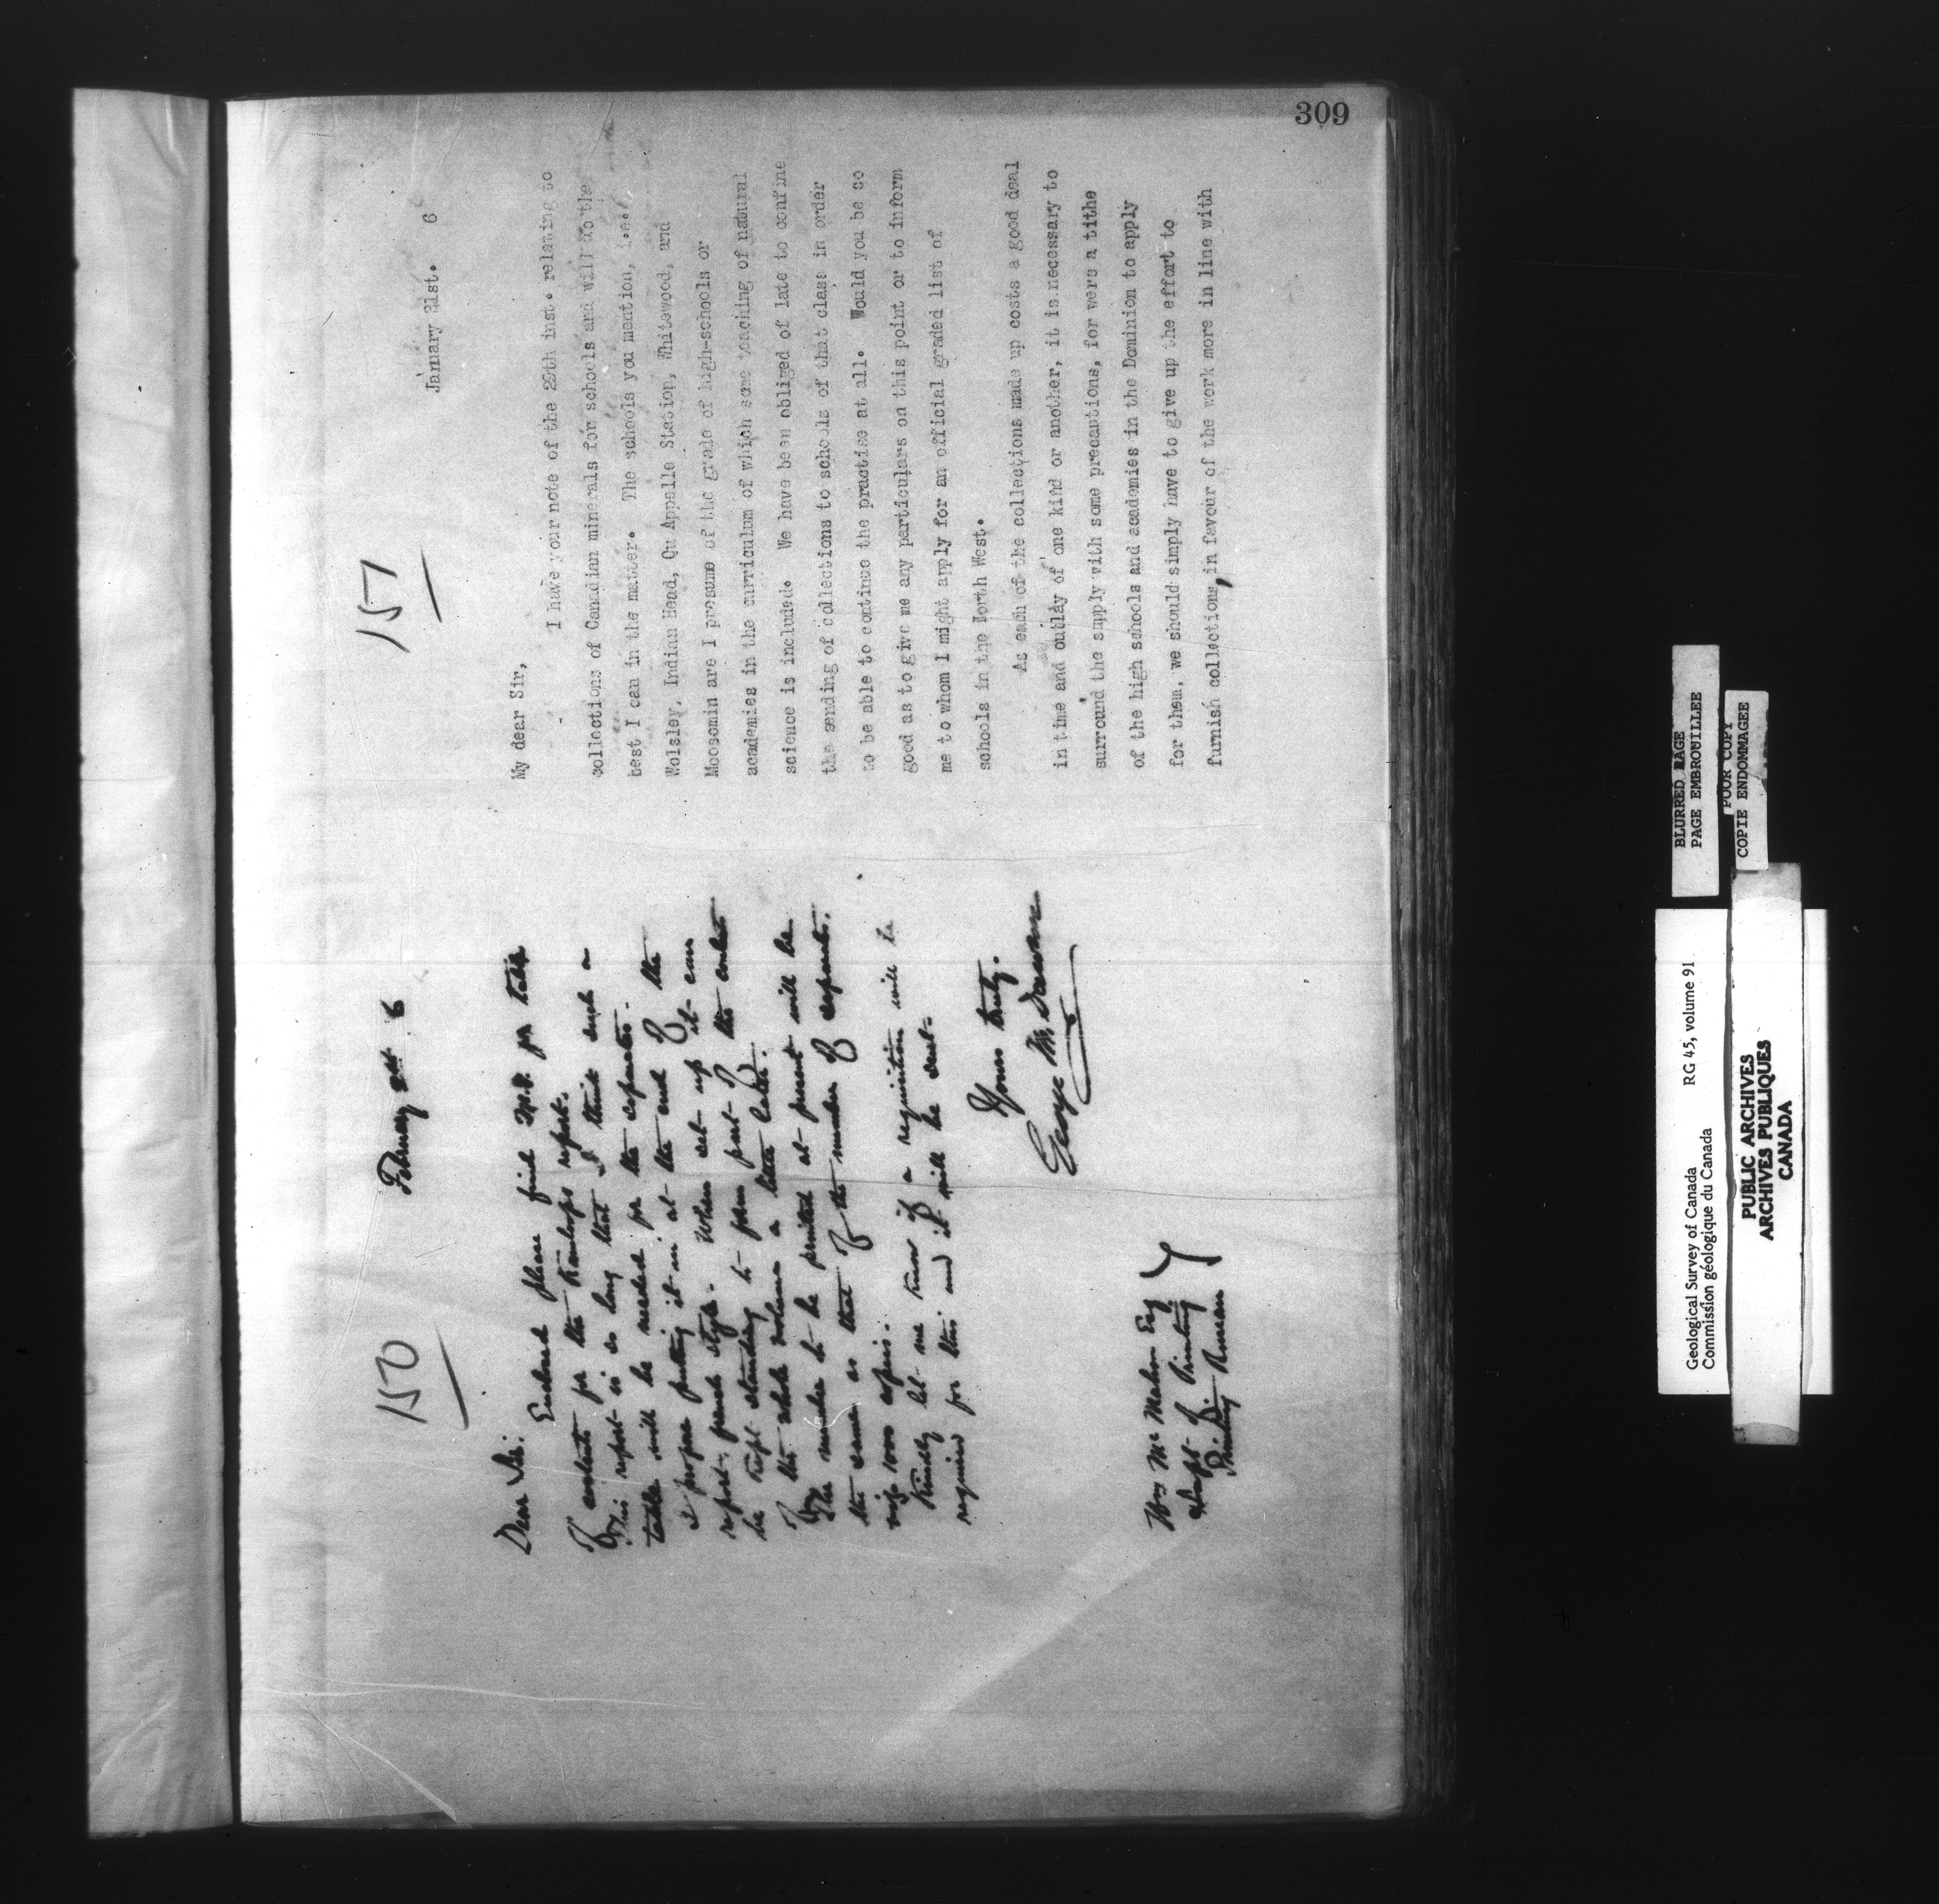 309
150
February 1st 6
Dear Sir:
Enclosed please find M.S. for table
of contents for the Kamloops report.
This report is so long that I think such a
table will be needed for the separates.
I propose putting it in at the end of the
report, french style. When set up it can
be kept standing to form part of the contents
of the whole volume a little later.
The number to be printed at present will be
the same as that of the number of separates.
viz 1000 copies.
Kindly let me know if a requisition will be
required for this and it will be sent.
Yours truly.
George M. Dawson
Wm McMahon Esq
Supt. of Printing
Printing Bureau
151
January 31st. 6
My dear Sir,
I have your note of the 29th inst. relating to
collections of Canadian minerals for schools and will do the
best I can in the matter. The schools you mention, i.e.
Wolsley, Indian Head, Qu Appelle Station, Whitewood, and
Moosomin are I presume of the grade of high-schools or
academies in the curriculum of which some teaching of natural
science is included. We have been obliged of late to confine
the sending of collections to schools of that class in order
to be able to continue the practise at all. Would you be so
good as to give me any particulars on this point or to inform
me to whom I might apply for an official graded list of
schools in the North West.
As each of the collections made up costs a good deal
in time and outlay of one kind or another, it is necessary to
surround the supply with some precautions, for were a tithe
of the high schools and academies in the Dominion to apply
for them, we should simply have to give up the effort to
furnish collections, in favour of the work more in line with
BLURRED PAGE
PAGE EMBROUILLEE
POOR COPY
COPIE ENDOMMAGEE
Geological Survey of Canada RG 45, volume 91
Commission géologique du Canada
PUBLIC ARCHIVES
ARCHIVES PUBLIQUES
CANADA